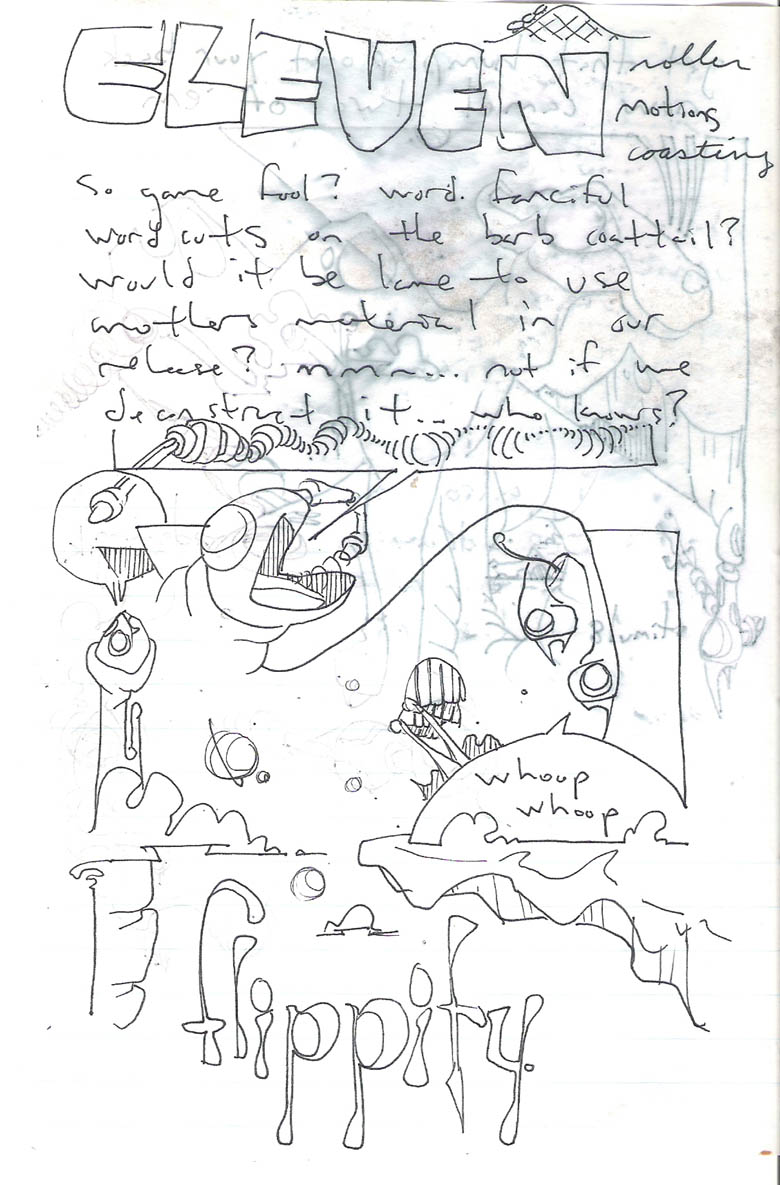 ELEVEN
roller
motions
coasting
So game fool? word. fanciful
word cuts on the barb coattail?
would it be lame to use
anothers material in our
release? mmm... not if we
deconstruct it... who knows?
whoop
whoop
flippity.